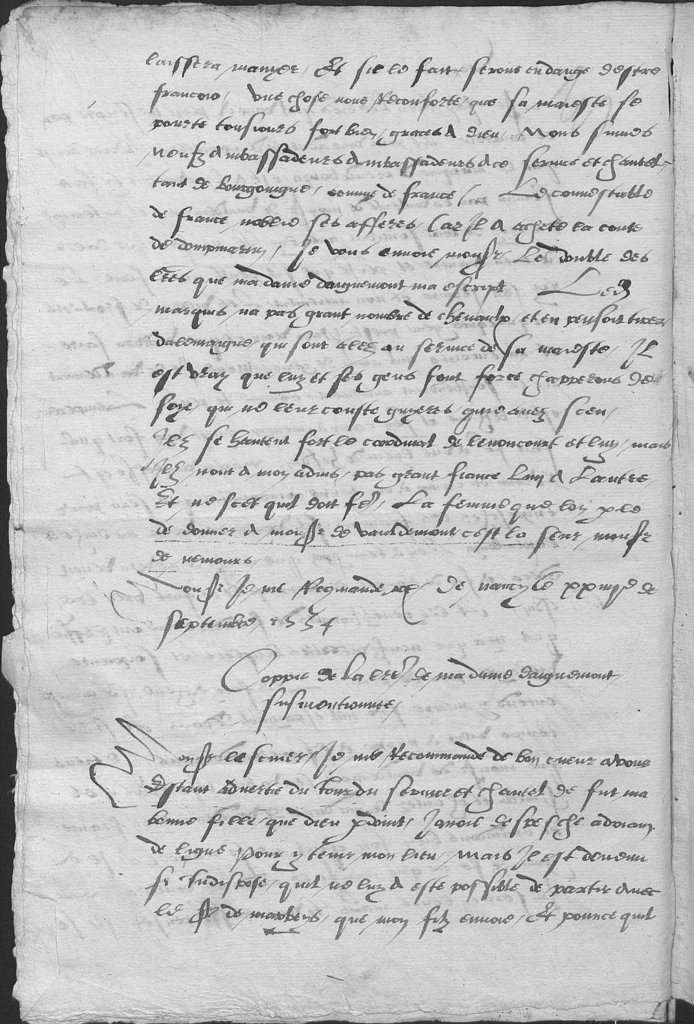 laissera manger, Et sil le fait, serons en dangé destre
francois, une chose nous Reconforte, que sa maieste se
porte tousiours fort bien, graces a dieu, Nous sumes
neufz ambassadeurs ambassadeurs a ce service et chantel
tant de bourgouigne, comme de france, Le connestable
de france noblie ses afferes, Car Il a achete la conté
de dompmartin, Je vous envoie monsr, Le double des
lres que madame daiguemont ma escript Led
marquis na pas grant nombre de chevaulx, et en pensoit tirer
dalemaigne, qui sont alez au service de sa maieste, Il
est vray que luy et ses gens font force chapperons de
soye, qui ne leur couste gueyres quil avez sceu,
Ilz se hantent fort le cardinal de lenoncourt et luy, mais
Ilz nont a mon advis, pas grant fiance Lun a Lautre
Et ne scet quil doit fe, La femme que lon ple
de donner a monsr de vauldemont cest la seur monsr
de nemours
Monsr Je me Recmande De nancy le xxiiije de
septembre 1554
Coppie de la lre de madame daiguemont
susmentionnee,
Monsr lescuier, Je me Recommande de bon cueur a vous
Estant advertie du Jour du service et chantel de fut ma
bonne fille, que dieu pdoint, Javoie despesche adrian
de ligne pour y tenir mon lieu, mais Il est devenu
si Indispose, quil ne luy a este possible de partir avec
le sr de marbays, que mon filz envoie, Et pource quil